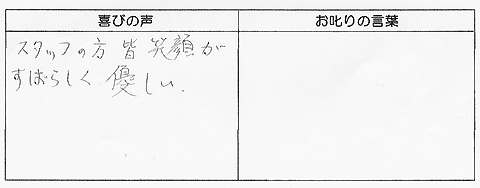 喜びの声
お叱りの言葉
スタッフの方 皆 笑顔が
すばらしく 優しい.